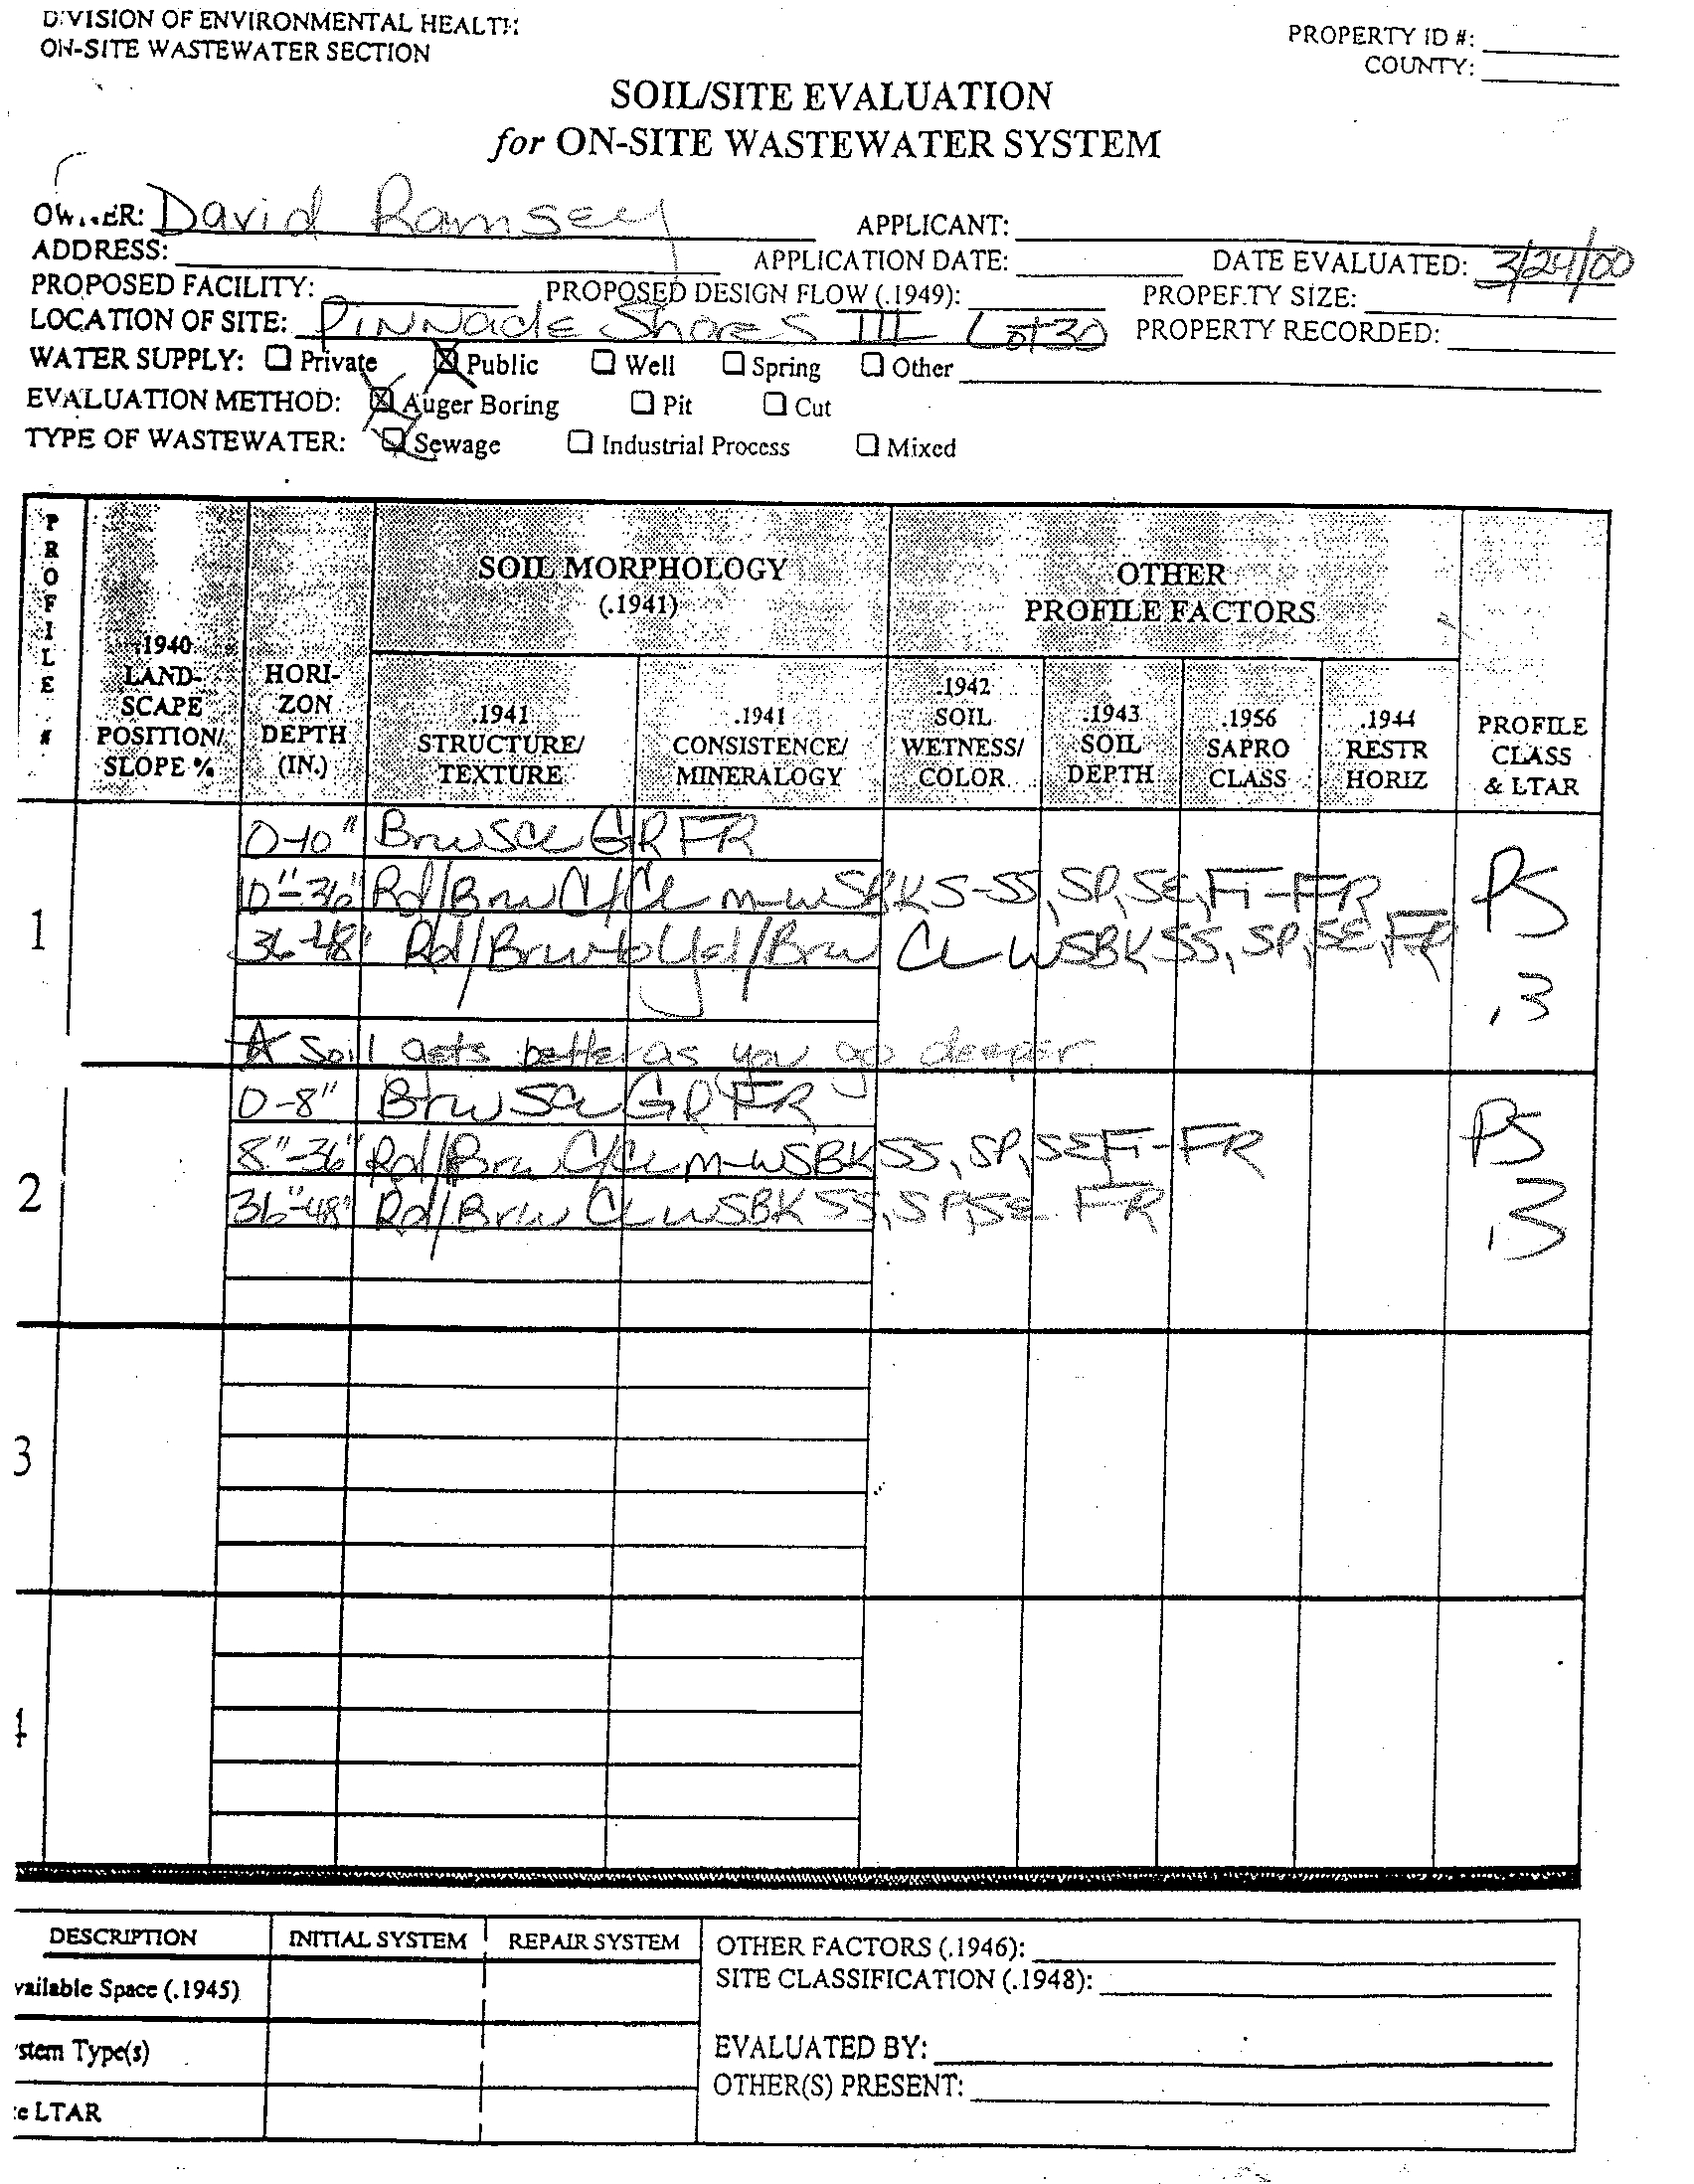 DIVISION OF ENVIRONMENTAL HEALTH
ON-SITE WASTEWATER SECTION
PROPERTY ID #:
COUNTY:
SOIL/SITE EVALUATION
for ON-SITE WASTEWATER SYSTEM
OWNER: David Ramsey APPLICANT:
ADDRESS: APPLICATION DATE: DATE EVALUATED: 3/24/00
PROPOSED FACILITY: PROPOSED DESIGN FLOW (.1949): PROPERTY SIZE:
LOCATION OF SITE: Pinnacle Shores III Lot 30 PROPERTY RECORDED:
WATER SUPPLY: ☐ Private ☒ Public ☐ Well ☐ Spring ☐ Other
EVALUATION METHOD: ☒ Auger Boring ☐ Pit ☐ Cut
TYPE OF WASTEWATER: ☒ Sewage ☐ Industrial Process ☐ Mixed
PROFILE #
.1940 LAND-SCAPE POSITION/ SLOPE %
HORI-ZON DEPTH (IN.)
SOIL MORPHOLOGY (.1941)
.1941 STRUCTURE/ TEXTURE
.1941 CONSISTENCE/ MINERALOGY
OTHER PROFILE FACTORS
.1942 SOIL WETNESS/ COLOR
.1943 SOIL DEPTH
.1956 SAPRO CLASS
.1944 RESTR HORIZ
PROFILE CLASS & LTAR
1
0-10" Brw SCL GR FR
10"-36" Rd/Brw C/CL m-wSBK S-SS, SP, SE, Fi-FR
36-48" Rd/Brw to Yel/Brw CL WSBK SS, SP, SE, FR
PS
.3
☆ Soil gets better as you go deeper.
2
0-8" Brw SCL GR FR
8"-36" Rd/Brw C/CL m-wSBK SS, SP, SE Fi-FR
36"-48" Rd/Brw CL wSBK SS, SP, SE FR
PS
.3
3
4
DESCRIPTION INITIAL SYSTEM REPAIR SYSTEM
vailable Space (.1945)
stem Type(s)
e LTAR
OTHER FACTORS (.1946):
SITE CLASSIFICATION (.1948):
EVALUATED BY:
OTHER(S) PRESENT: